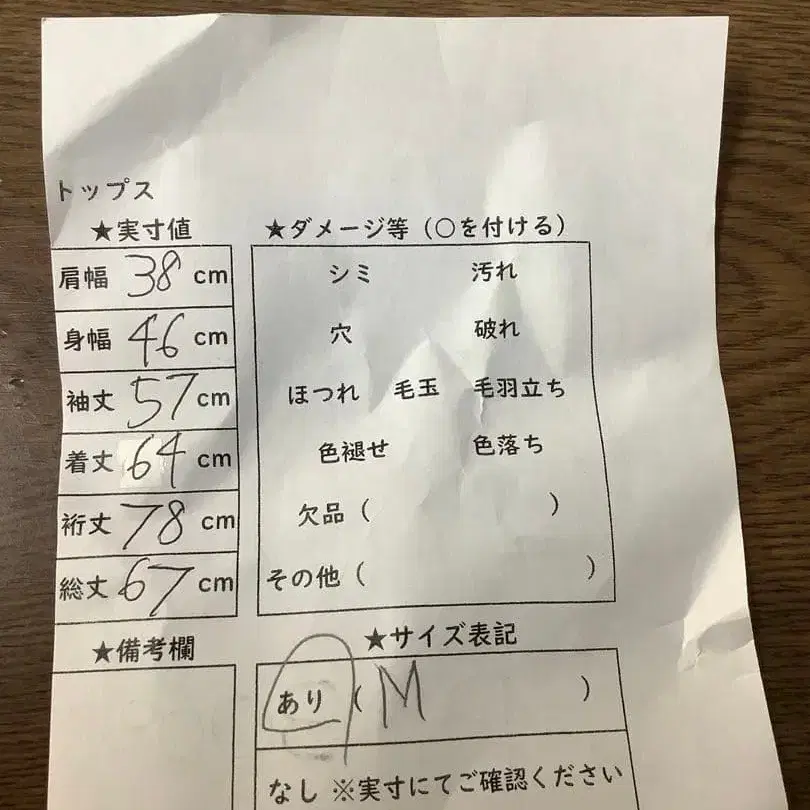 トップス
★実寸値
肩幅 38 cm
身幅 46 cm
袖丈 57 cm
着丈 64 cm
裄丈 78 cm
総丈 67 cm
★備考欄
★ダメージ等（○を付ける）
シミ 汚れ
穴 破れ
ほつれ 毛玉 毛羽立ち
色褪せ 色落ち
欠品（ ）
その他（ ）
★サイズ表記
あり（ M ）
なし ※実寸にてご確認ください